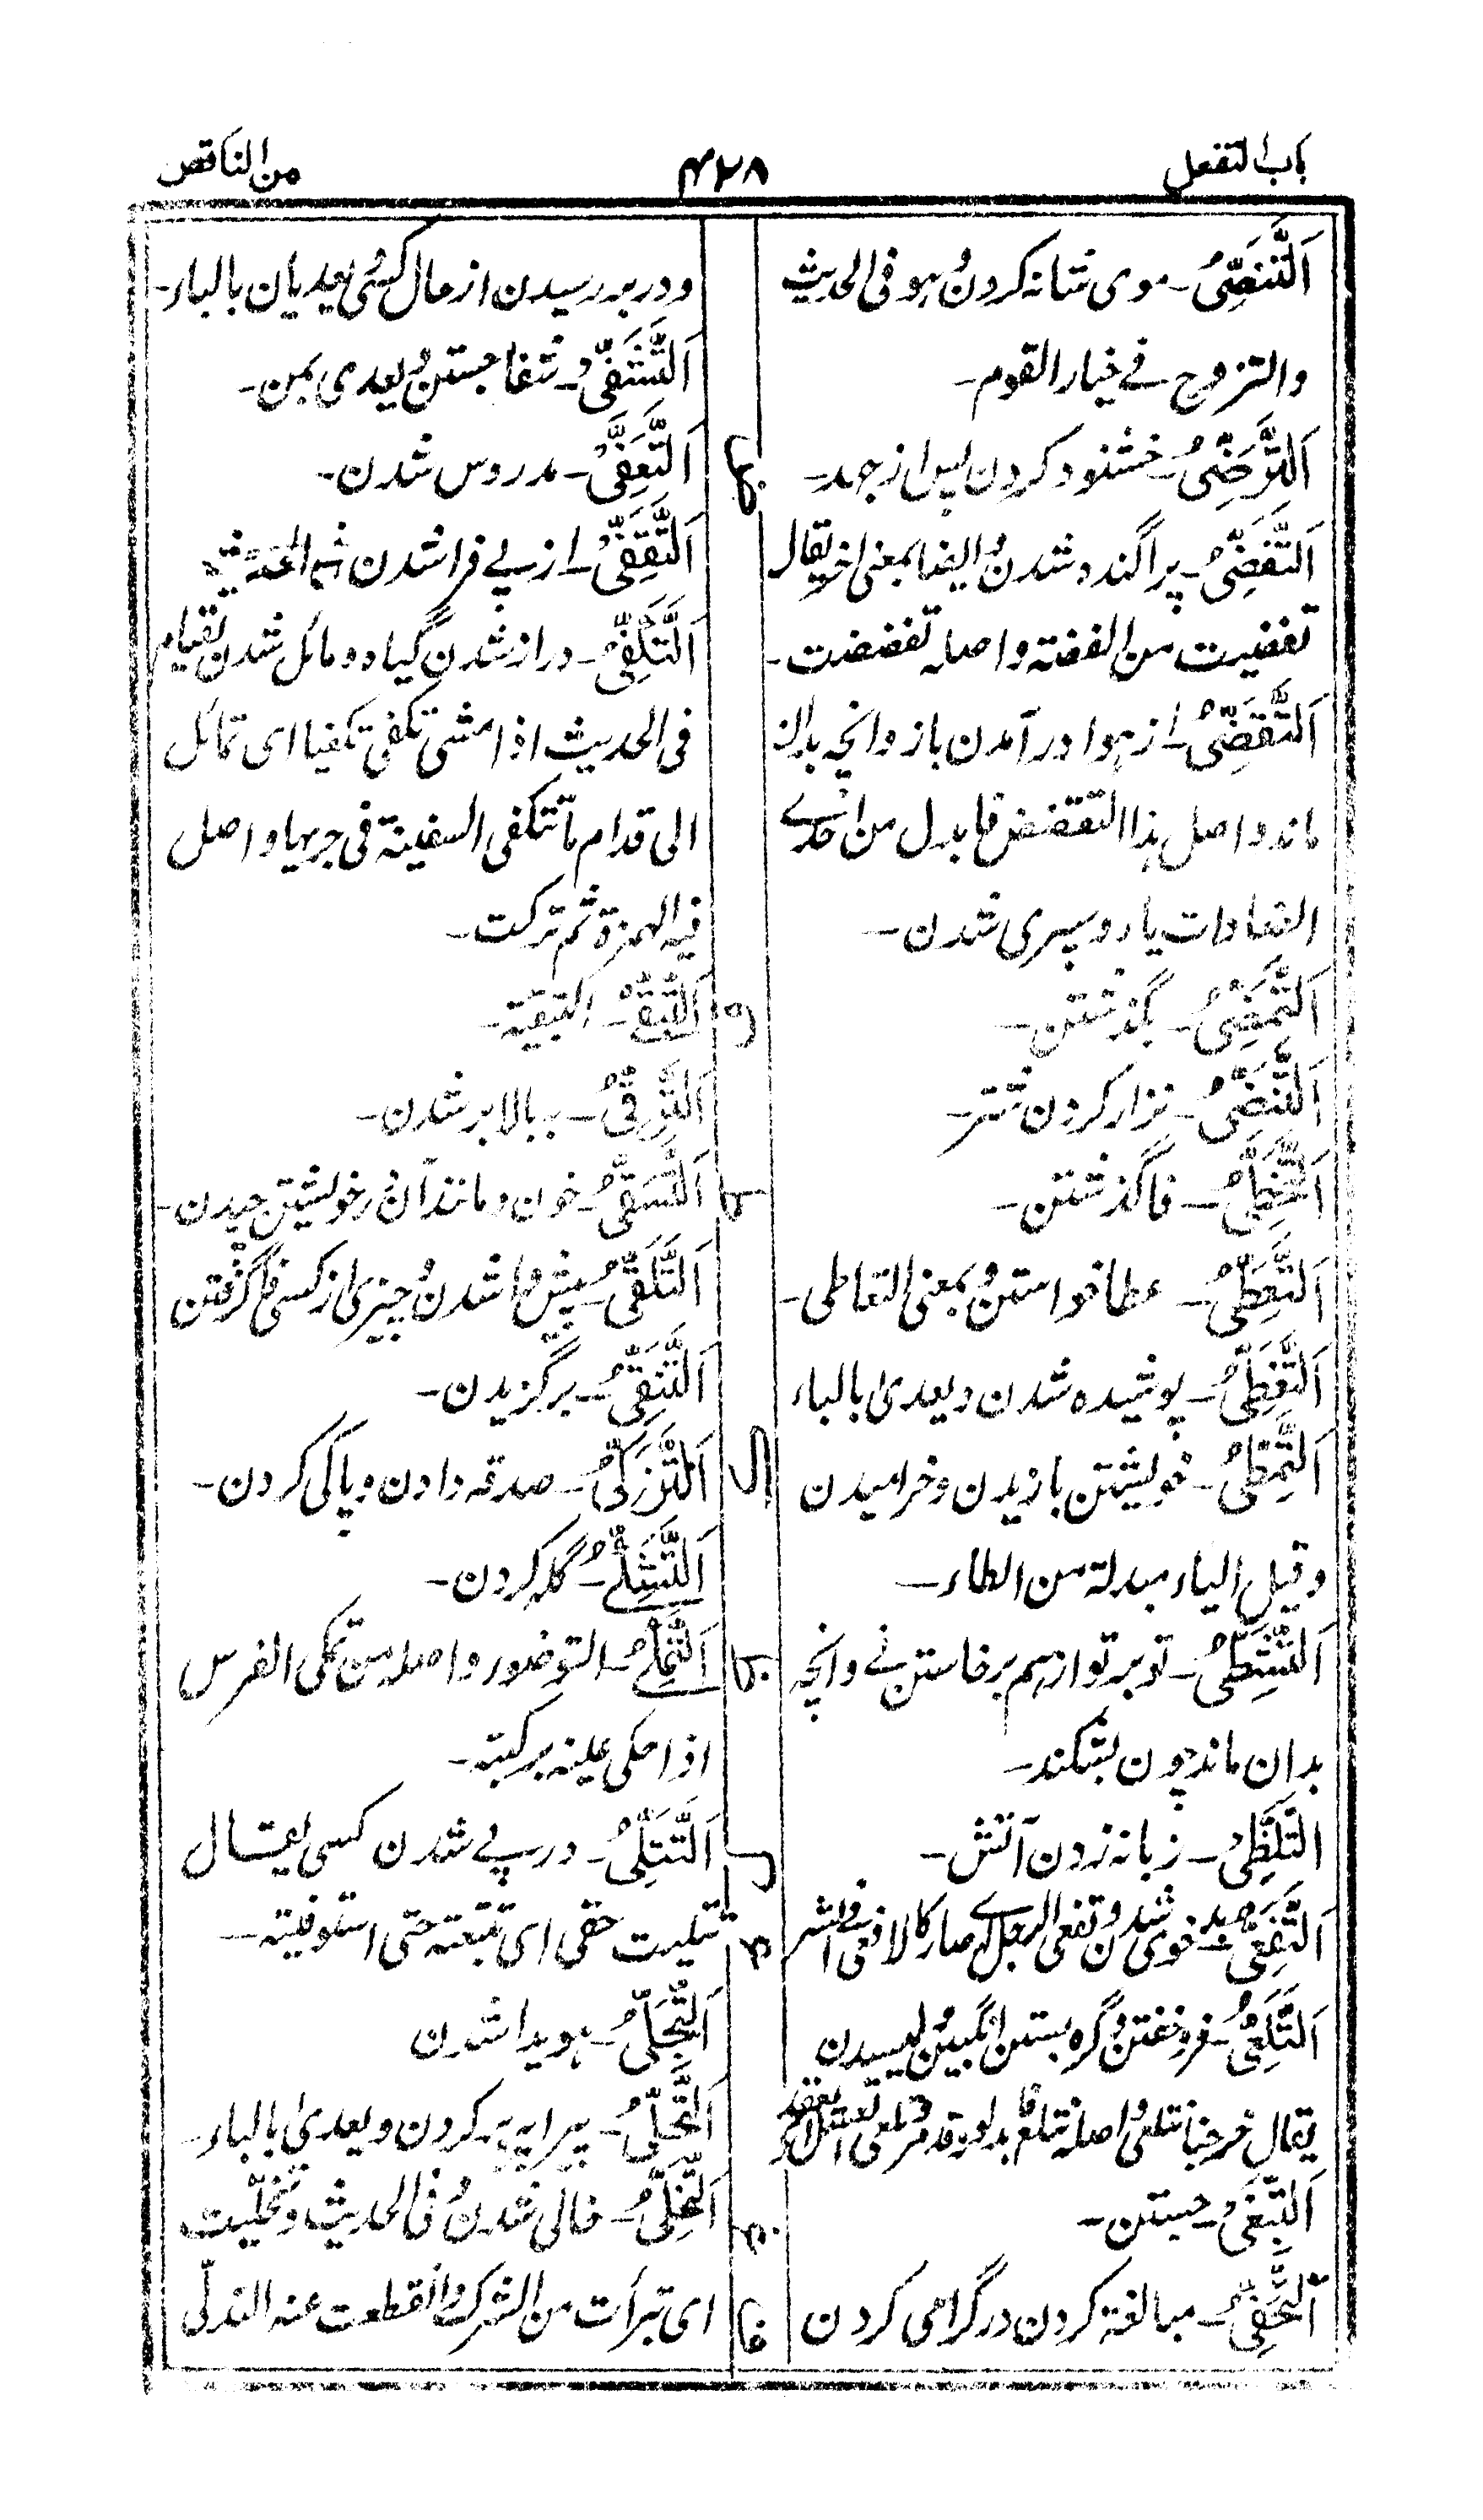 باب التفعل
۴۲۸
من الناقص
اَلتَّنَصِّیُ۔ موی شانہ کردن وہو فی الحدیث
والتزوج فے خیار القوم۔
اَلتَّرَضِّیُ۔ خشنود کردن پس از جہد۔
اَلتَّفَضِّیُ۔ پراگندہ شدن ایضا بمعنی اخر یقال
تفضیت من الفضتہ و اصلہ تفضضت۔
اَلتَّقَضِّیُ۔ از ہوا در آمدن باز و انچہ بدان
ماند و اصل ہذا التقضض فابدل من احدے
الضادات یاء و سپری شدن۔
اَلتَّمَضِّیُ۔ بگذشتن۔
اَلتَّنَضِّیُ۔ نزار کردن شتر۔
اَلتَّخَطِّیُ۔ فا گذشتن۔
اَلتَّعَطِّیُ۔ عطا خواستن و بمعنی التعاطی۔
اَلتَّغَطِّیُ۔ پوشیدہ شدن و یعدی بالباء
اَلتَّمَطِّیُ۔ خویشتن یازیدن و خرامیدن
و قیل الیاء مبدلۃ من الطاء۔
اَلتَّشَظِّیُ۔ تو بر تو از ہم برخاستن نے و انچہ
بدان ماند چون بشکند۔
اَلتَّلَظِّیُ۔ زبانہ زدن آتش۔
اَلتَّفَعِّیُ۔ بدخوی شدن و تفعی الرجل اے صار کالافعی فے الشر
اَلتَّلَعِّیُ۔ گرہ بستن انگبین لیسیدن
یقال خرجنا نتلعی اصلہ نتلعع
اَلتَّبَغِّیُ۔ جستن۔
اَلتَّحَفِّیُ۔ مبالغہ کردن در گرامی کردن
بہا
و
ک
ل
خا
و در بر رسیدن از حال کسی و یعدیان بالباء۔
اَلتَّشَفِّیُ۔ شفا جستن و یعدی بمن۔
اَلتَّعَفِّیُ۔ مدروس شدن۔
اَلتَّقَفِّیُ۔ از پے فرا شدن
اَلتَّکَفِّیُ۔ دراز شدن گیاہ و مائل شدن بقیام
فی الحدیث اذا مشی تکفی تکفیا ای تمائل
الی قدام کما تتکفی السفینۃ فی جریہا و اصل
فیہ الہمزۃ ثم ترکت۔
اَلتَّبَقِّیُ۔ التبقیۃ۔
اَلتَّرَقِّیُ۔ ببالا بر شدن۔
اَلتَّسَقِّیُ۔ خون و مانند آن در خویشتن چیدن۔
اَلتَّلَقِّیُ۔ پیش وا شدن و چیزی از کسی فرا گرفتن
اَلتَّنَقِّیُ۔ برگزیدن۔
اَلتَّزَکِّیُ۔ صدقہ دادن و پاکی کردن۔
اَلتَّشَکِّیُ۔ گلہ کردن۔
اَلتَّمَکِّیُ۔ التوضور و اصلہ من تمکی الفرس
اذا حکی عینہ برکبتہ۔
اَلتَّتَلِّیُ۔ در پے شدن کسی یقال
تتلیت حقی ای تتبعتہ حتی استوفیتہ۔
اَلتَّجَلِّیُ۔ ہویدا شدن
اَلتَّحَلِّیُ۔ پیرایہ بر کردن و یعدی بالباء۔
اَلتَّخَلِّیُ۔ خالی شدن و فی الحدیث و تخلیت
ای تبرأت من الشرک و انقطعت عنہ التدلی